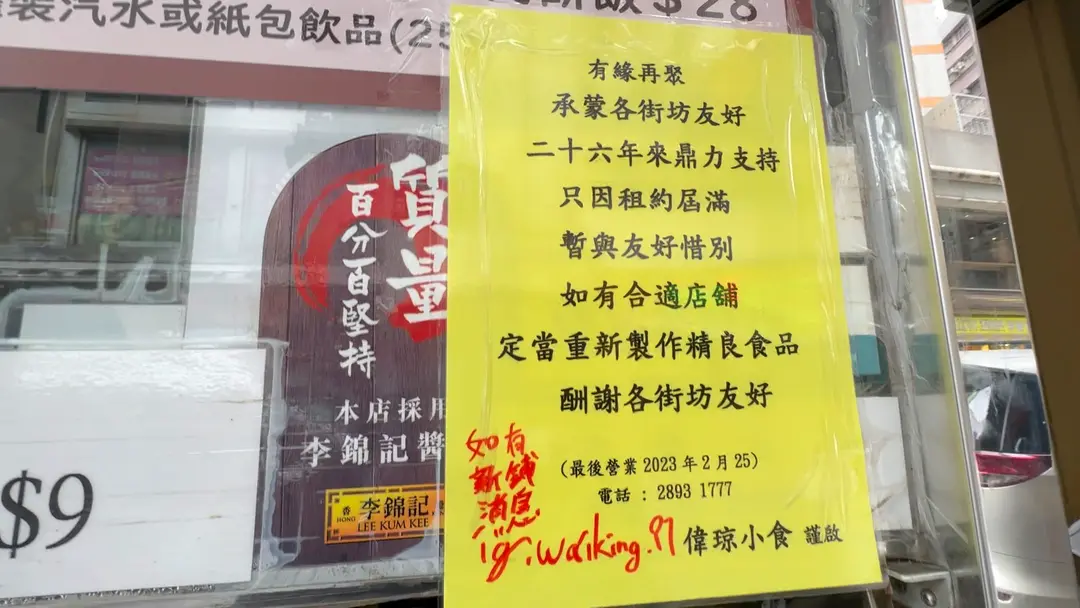 裝汽水或紙包飲品(25
$28
有緣再聚
承蒙各街坊友好
二十六年來鼎力支持
只因租約屆滿
暫與友好惜別
如有合適店舖
定當重新製作精良食品
酬謝各街坊友好
(最後營業 2023 年 2 月 25)
電話 : 2893 1777
偉琼小食 謹啟
如有
新舖
消息
ig.walking.97
質量
百分百堅持
本店採用
李錦記醬
香
HONG
李錦記
LEE KUM KEE
$9